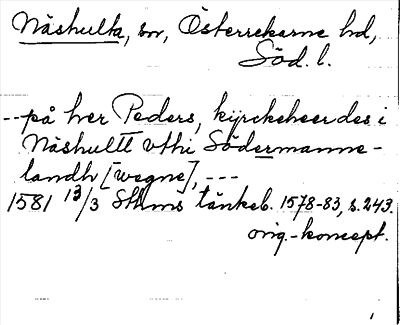 Näshulta, sn, Österrekarne hd,
Söd. l.
--på her Peders, kyrckeheerdes i
Näshultt vthi Södermanne-
landh [wegne], ---
1581 13/3 Sthms tänkeb. 1578-83, s. 243.
orig.-koncept.